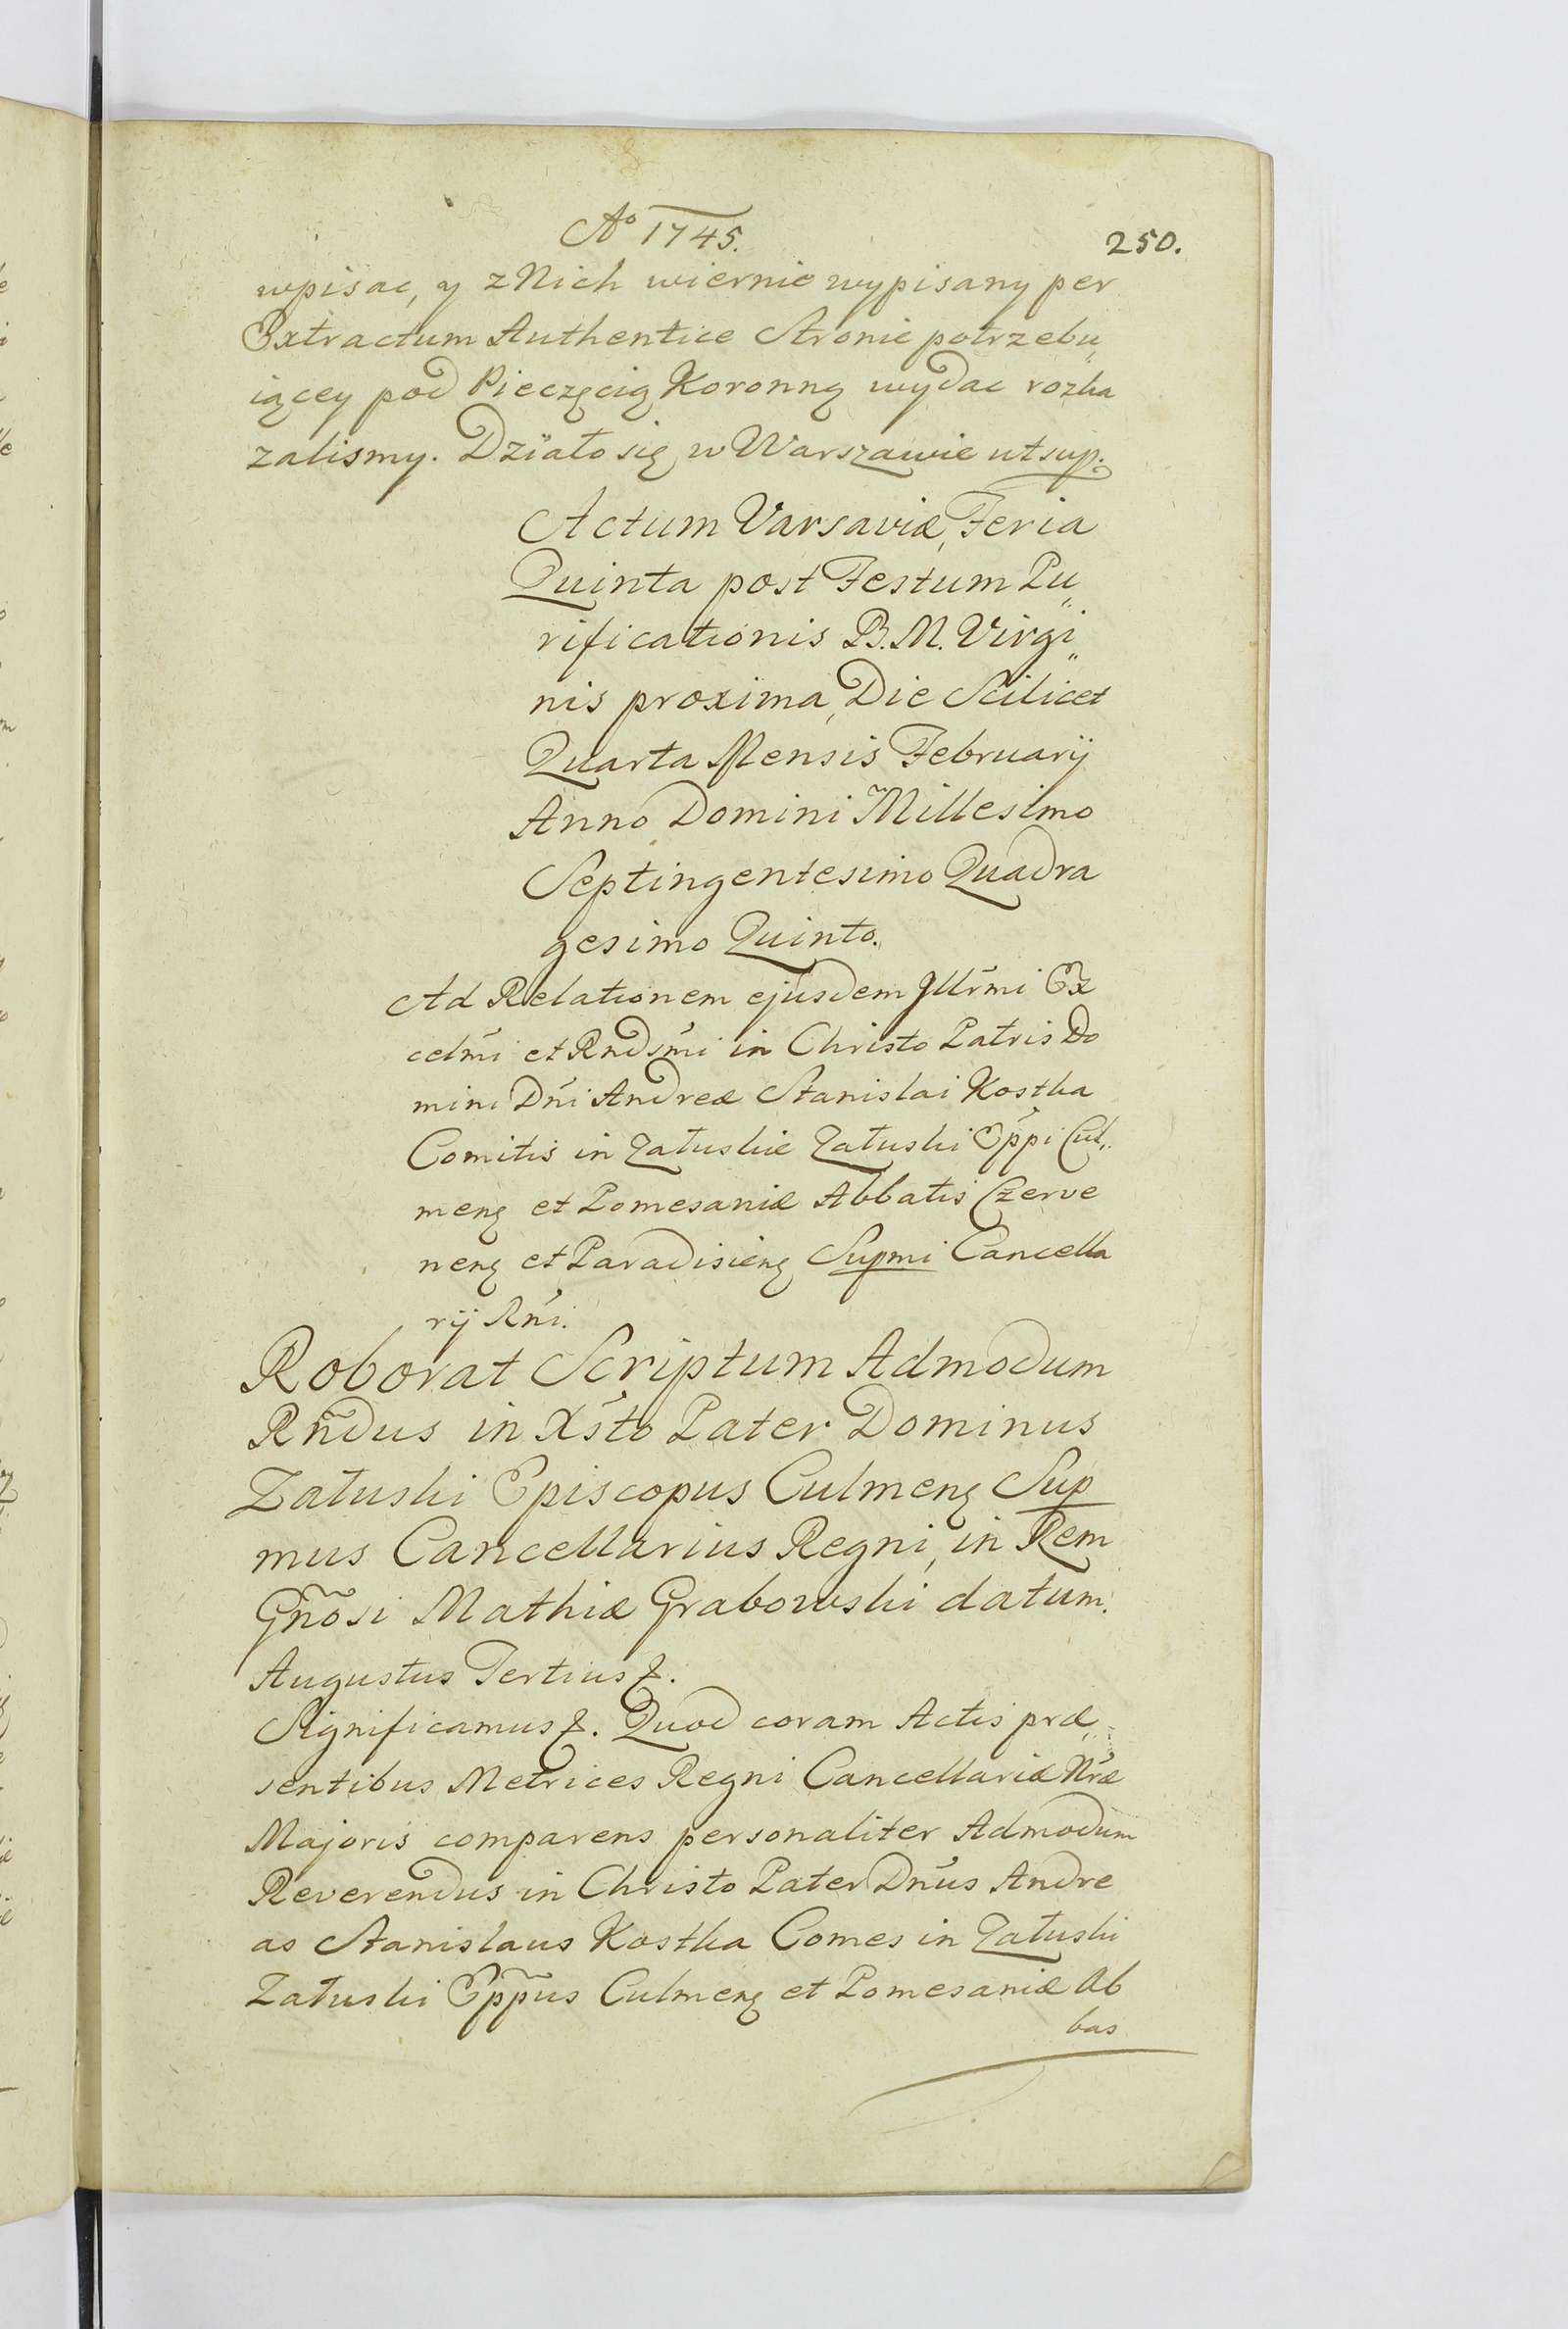 Aº 1745.
250.
wpisac, y z Nich wiernie wypisany per
Extractum Authentice Stronie potrzebu„
iącey pod Pieczęcią Koronną wydac rozka
zalismy. Działo się w Warszawie ut sup.
Actum Varsaviæ, Feria
Quinta post Festum Pu„
rificationis B. M. Virgi„
nis proxima, Die Scilicet
Quarta Mensis Februarij
Anno Domini Millesimo
Septingentesimo Quadra
gesimo Quinto.
Ad Relationem ejusdem Jllr̃mi Ex
cełm̃i et Rndsm̃i in Christo Patris Do
mini Dn̄i Andreæ Stanislai Kostka
Comitis in Załuskie Załuski Epp̃i Cul„
menę et Pomesaniæ Abbatis Czerve
nenę et Paradisienę Supmi Cancella
rij Rn̄i.
Roborat Scriptum Admodum
Rn̄dus in Xs̃to Pater Dominus
Załuski Episcopus Culmenę Sup
mus Cancellarius Regni, in Rem
Gn̄osi Mathiæ Grabowski datum.
Augustus Tertius &.
Significamus &. Quod coram Actis præ„
sentibus Metrices Regni Cancellariæ Nr̃æ
Majoris comparens personaliter Admodum
Reverendus in Christo Pater Dn̄us Andre
as Stanislaus Kostka Comes in Załuski
Załuski Epp̃us Culmenę et Pomesaniæ Ab
bas